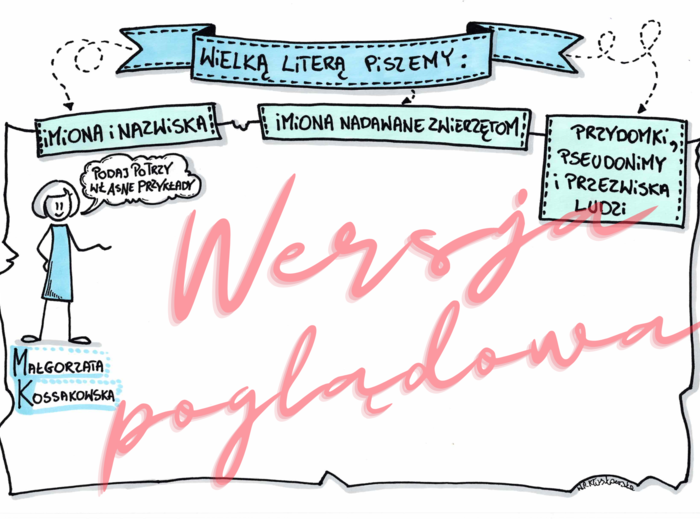 WIELKĄ LITERĄ PISZEMY:
IMIONA I NAZWISKA
IMIONA NADAWANE ZWIERZĘTOM
PRZYDOMKI,
PSEUDONIMY
I PRZEZWISKA
LUDZI
PODAJ PO TRZY
WŁASNE PRZYKŁADY
Wersja
poglądowa
MAŁGORZATA
KOSSAKOWSKA